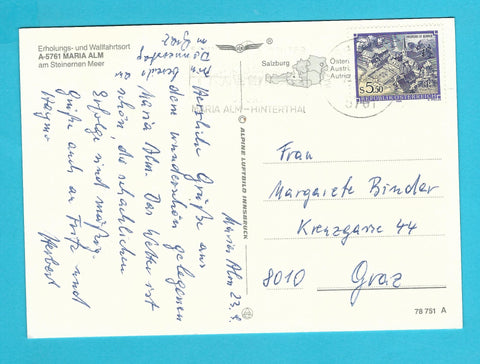 Erholungs- und Wallfahrtsort
A-5761 MARIA ALM
am Steinernen Meer
®
Salzburg
Öster
Austri
Autric
MARIA ALM-HINTERTHAL
5761
S 5.50
REPUBLIK ÖSTERREICH
Maria Alm 23.9.
Herzliche Grüße aus
dem wunderschön gelegenen
Maria Alm. Das Wetter ist
schön, die schachlichen
Erfolge sind mäßig.
Grüße auch an Fritz und
Herbert
Bin bereits
am
Donnerstag
in Graz
© ALPINE LUFTBILD INNSBRUCK
Frau
Margarete Binder
Kreuzgasse 44
8010 Graz
78 751 A